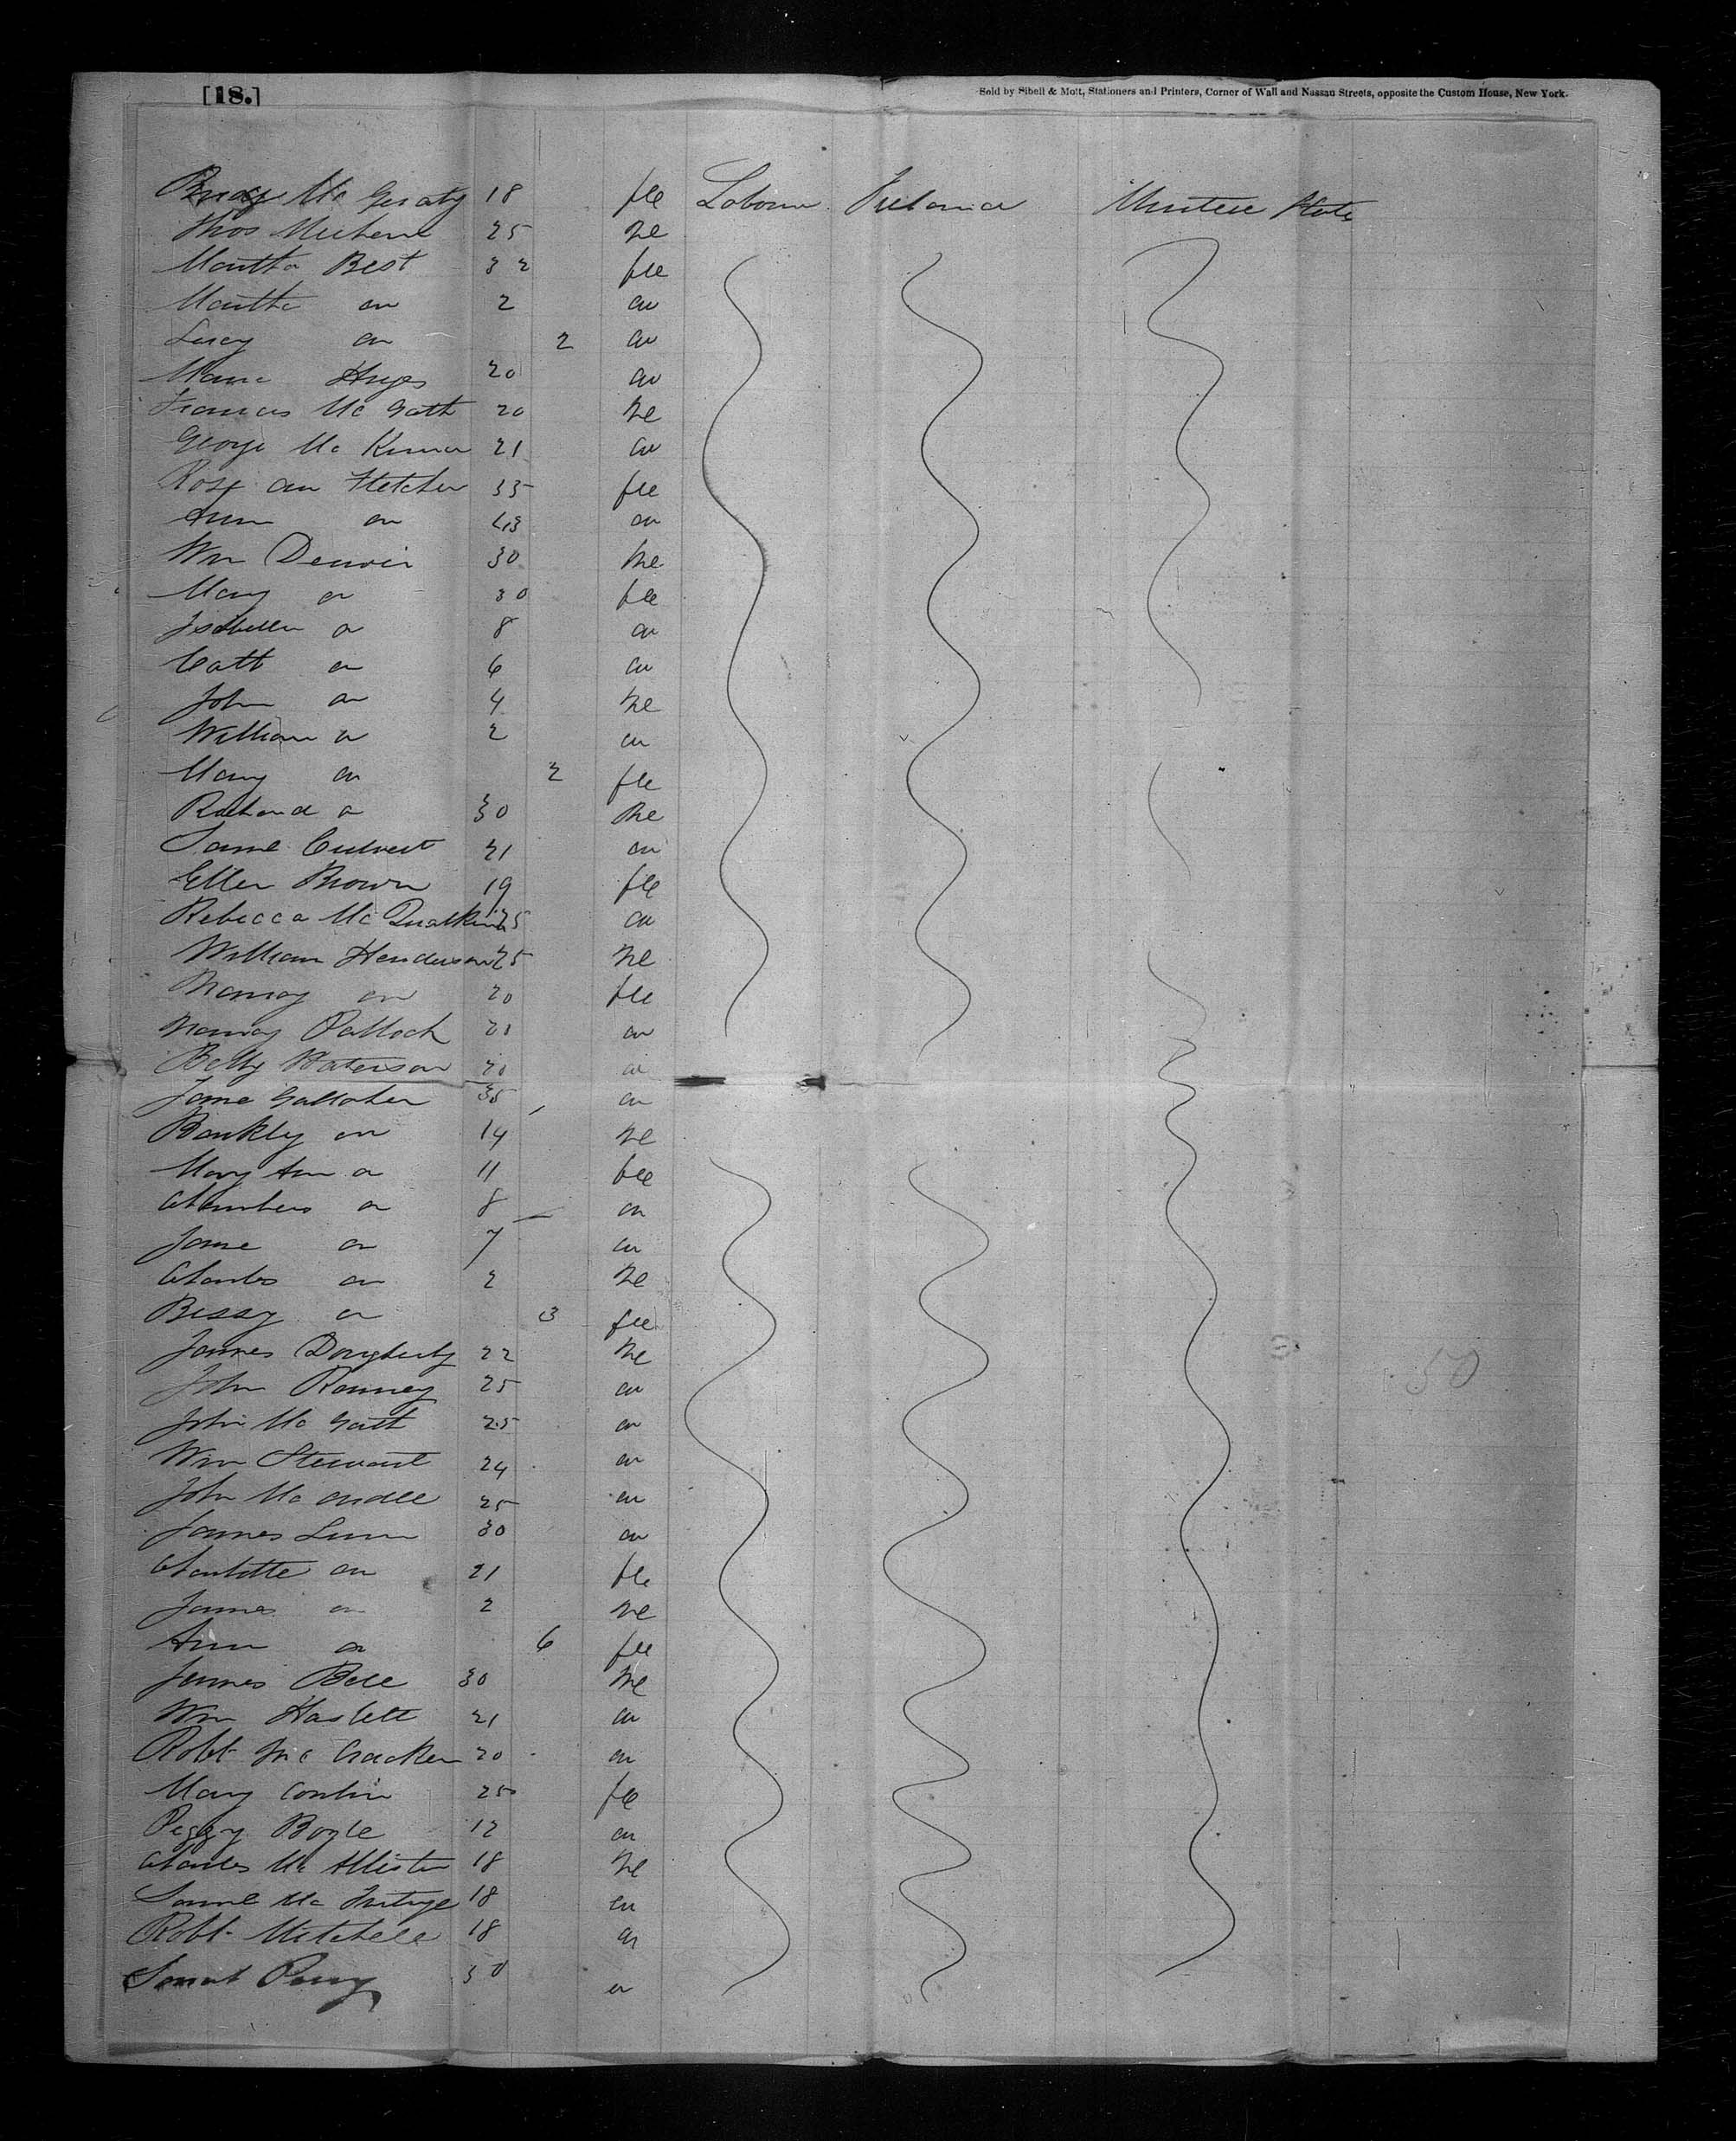 [18.]
Sold by Sibell & Mott, Stationers and Printers, Corner of Wall and Nassau Streets, opposite the Custom House, New York.
Mc Geraty 18 fle Labourer Ireland United State
Thos 25 Me
Martha Best 32 fle
Martha an 2 an
Lucy an 2 an
Huges 20 an
Frances Mc Gath 20 Me
George Mc 21 an
Rose an Fletcher 35 fle
Ann an an
Wm 30 Me
Mary a 30 fle
Isabella a 8 an
Catt a 6 an
John an 4 Me
William a 2 an
Mary an 2 fle
Richard a 30 Me
Saml 21 an
Ellen Brown 19 fle
Rebecca Mc 25 an
William Henderson 25 Me
Nancy an 20 fle
Nancy Pallock 20 an
Betty Waterson 20 an
Jane Gallaher 35 an
Bankly an 14 Me
Mary Ann a 11 fle
Chambers a 8 an
Jane an 7 an
Charles an 2 Me
Bessy a 3 fle
James Dougherty 22 Me
John Ranney 25 an
John Mc Gath 25 an
Wm Stewart 24 an
John Mc Ardle 25 an
James Lunn 30 an
Charlotte an 21 fle
James an 2 Me
Ann a 6 fle
James Bell 30 Me
Wm Haslett 21 an
Robt Mc Cracken 20 an
Mary Conlin 25 fle
Peggy Boyle 12 an
Charles Mc Allister 18 Me
Saml Mc 18 an
Robt Mitchell 18 an
Perry 30 a
50